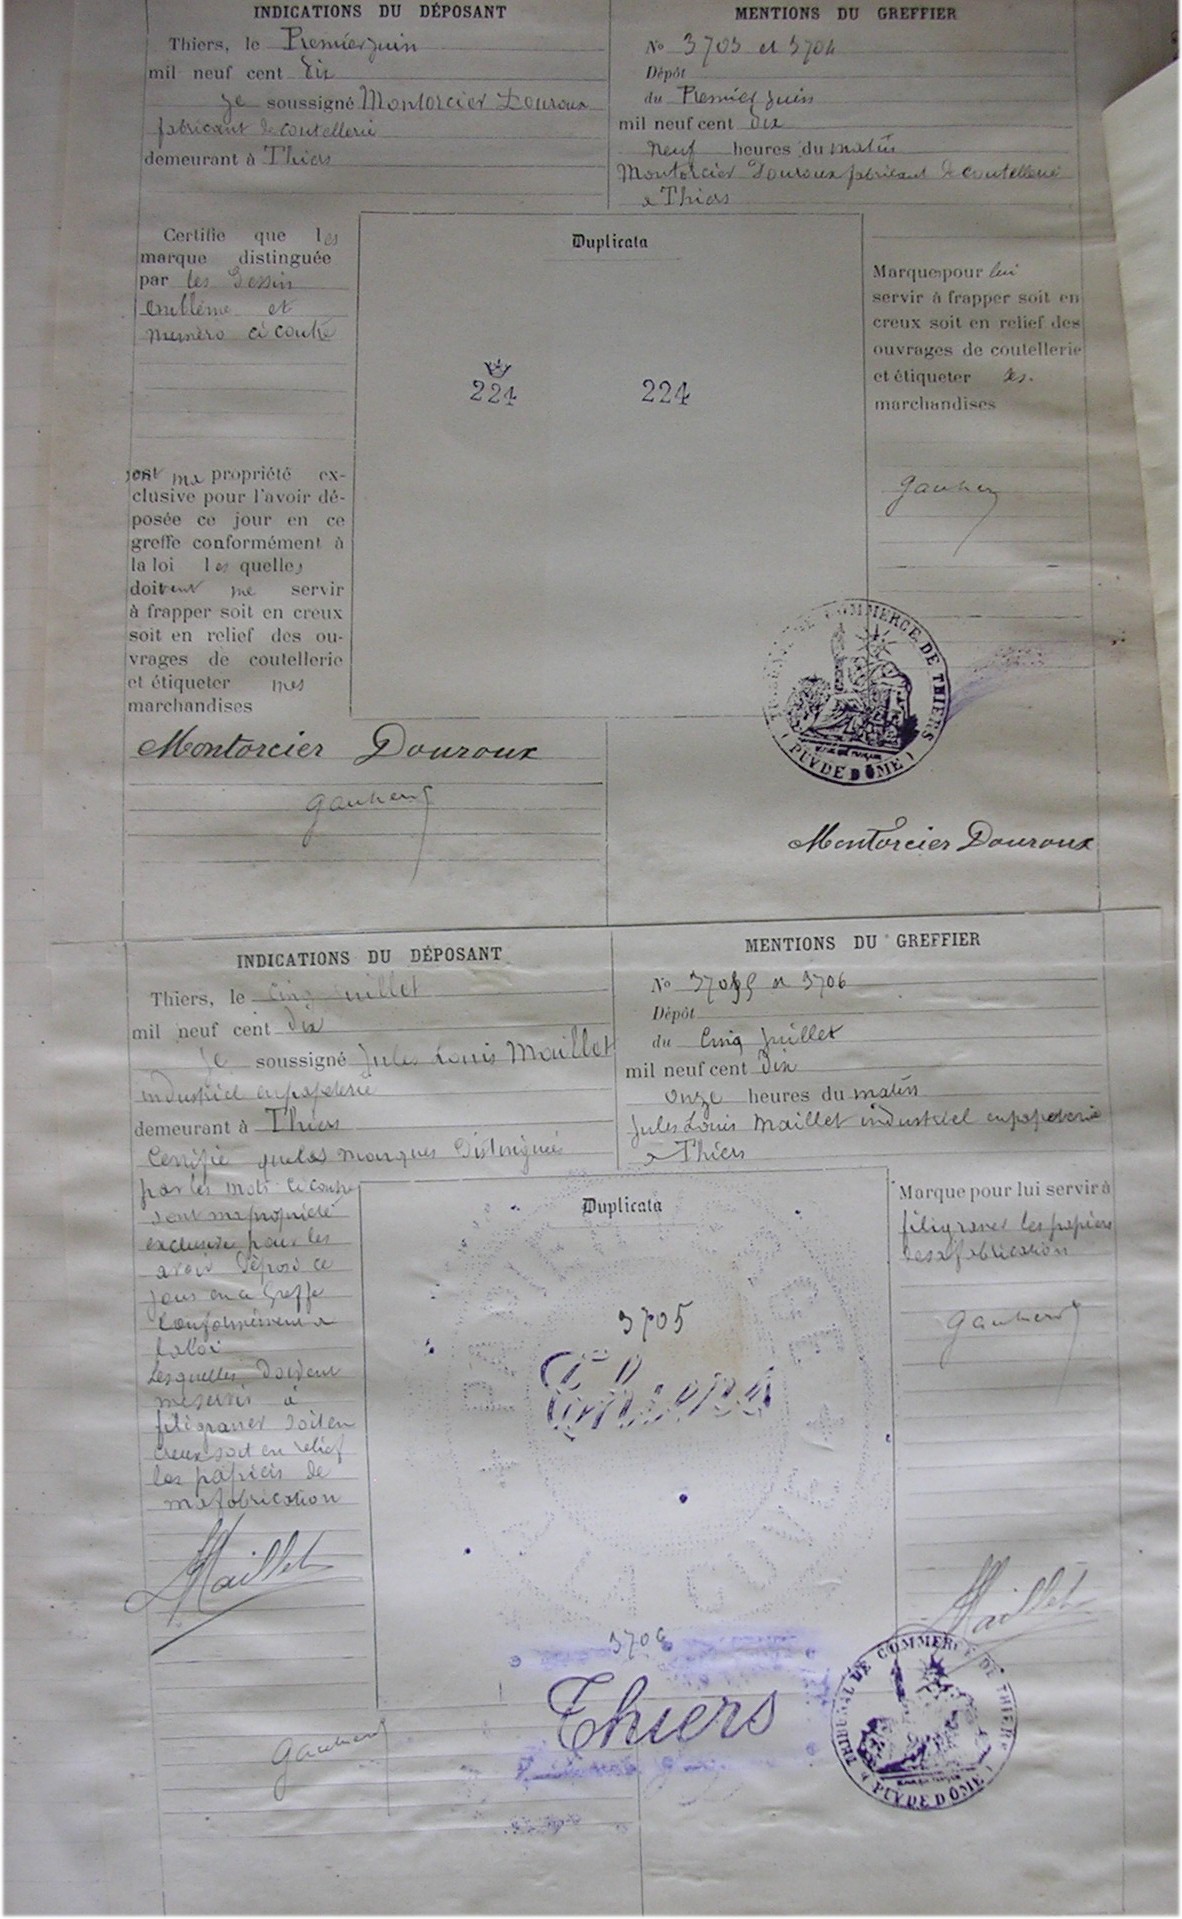 INDICATIONS DU DÉPOSANT
Thiers, le Premier juin
mil neuf cent dix
Je soussigné Montorcier Douroux
fabricant de coutellerie
demeurant à Thiers
MENTIONS DU GREFFIER
No 3703 et 3704
Dépôt
du Premier juin
mil neuf cent dix
neuf heures du matin
Montorcier Douroux fabricant de coutellerie
a Thiers
Certifie que les
marque distinguée
par les dessin
emblème et
numéro ci contre
sont ma propriété ex-
clusive pour l'avoir dé-
posée ce jour en ce
greffe conformément à
la loi les quelles
doivent me servir
à frapper soit en creux
soit en relief des ou-
vrages de coutellerie
et étiqueter mes
marchandises
Montorcier Douroux
Duplicata
224 224
Marque pour lui
servir à frapper soit en
creux soit en relief des
ouvrages de coutellerie
et étiqueter ses
marchandises
TRIBUNAL DE COMMERCE DE THIERS
(PUY DE DÔME)
Montorcier Douroux
INDICATIONS DU DÉPOSANT
Thiers, le Cinq juillet
mil neuf cent dix
Je soussigné Jules Louis Maillet
industriel en papeterie
demeurant à Thiers
Certifie que les marques distinguées
par les mots ci contre
sont ma propriété
exclusive pour les
avoir déposé ce
jour en ce Greffe
conformément a
la loi
Lesquelles doivent
me servir à
filigraner soit en
creux soit en relief
les papiers de
ma fabrication
Maillet
MENTIONS DU GREFFIER
No 3705 et 3706
Dépôt
du Cinq Juillet
mil neuf cent dix
onze heures du matin
Jules Louis Maillet industriel en papeterie
a Thiers
Duplicata
3705
Thiers
3706
Thiers
Marque pour lui servir à
filigraner les papiers
de sa fabrication
Maillet
TRIBUNAL DE COMMERCE DE THIERS
(PUY DE DÔME)